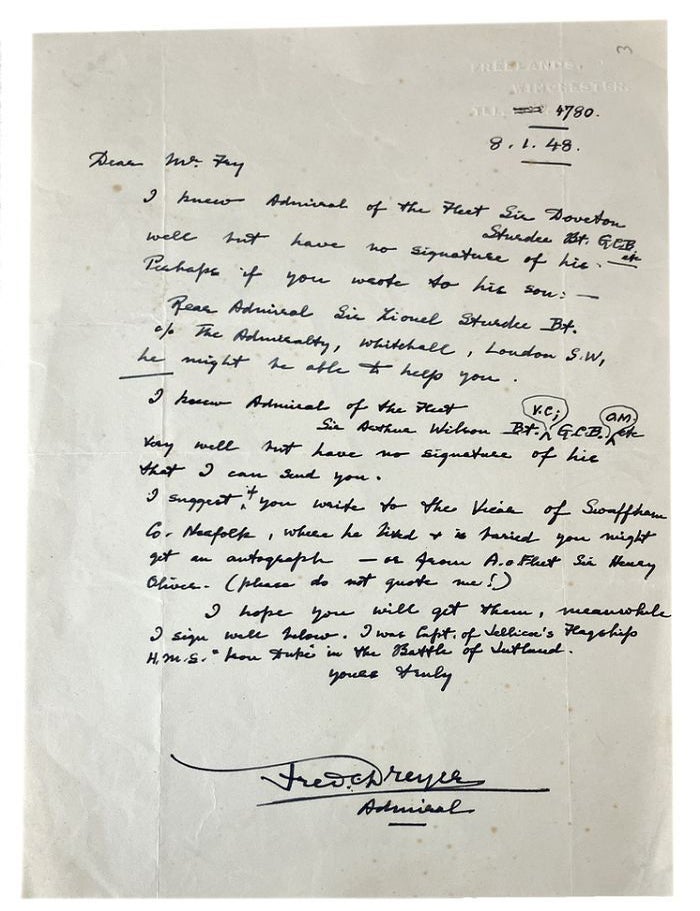 3
FREELANDS,
WINCHESTER.
TEL. 4780.
8.1.48.
Dear Mr. Fry
I knew Admiral of the Fleet Sir Doveton
Sturdee Bt. G.C.B. etc
well but have no signature of his.
Perhaps if you wrote to his son:—
Rear Admiral Sir Lionel Sturdee Bt.
c/o The Admiralty, Whitehall, London S.W.1
he might be able to help you.
I knew Admiral of the Fleet
Sir Arthur Wilson Bt. V.C; G.C.B. O.M. etc
very well but have no signature of his
that I can send you.
I suggest if you write to the Vicar of Swaffham
Co. Norfolk, where he lived & is buried you might
get an autograph — or from A. o Fleet Sir Henry
Oliver. (please do not quote me!)
I hope you will get them, meanwhile
I sign well below. I was Capt. of Jellicoe's Flagship
H.M.S. "Iron Duke" in the Battle of Jutland.
yours truly
Fred. C. Dreyer
Admiral